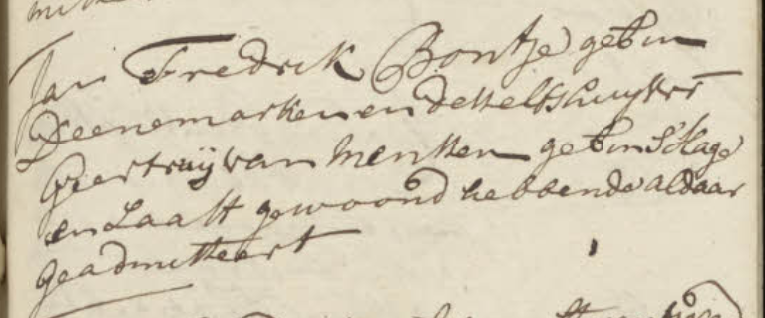 Jan Fredrick Bontje geb in
Deenemarken en desselfs huysvr
Geertruij van Menken geb in S'Hage
en Laast gewoond hebbende aldaar
geadmitteert